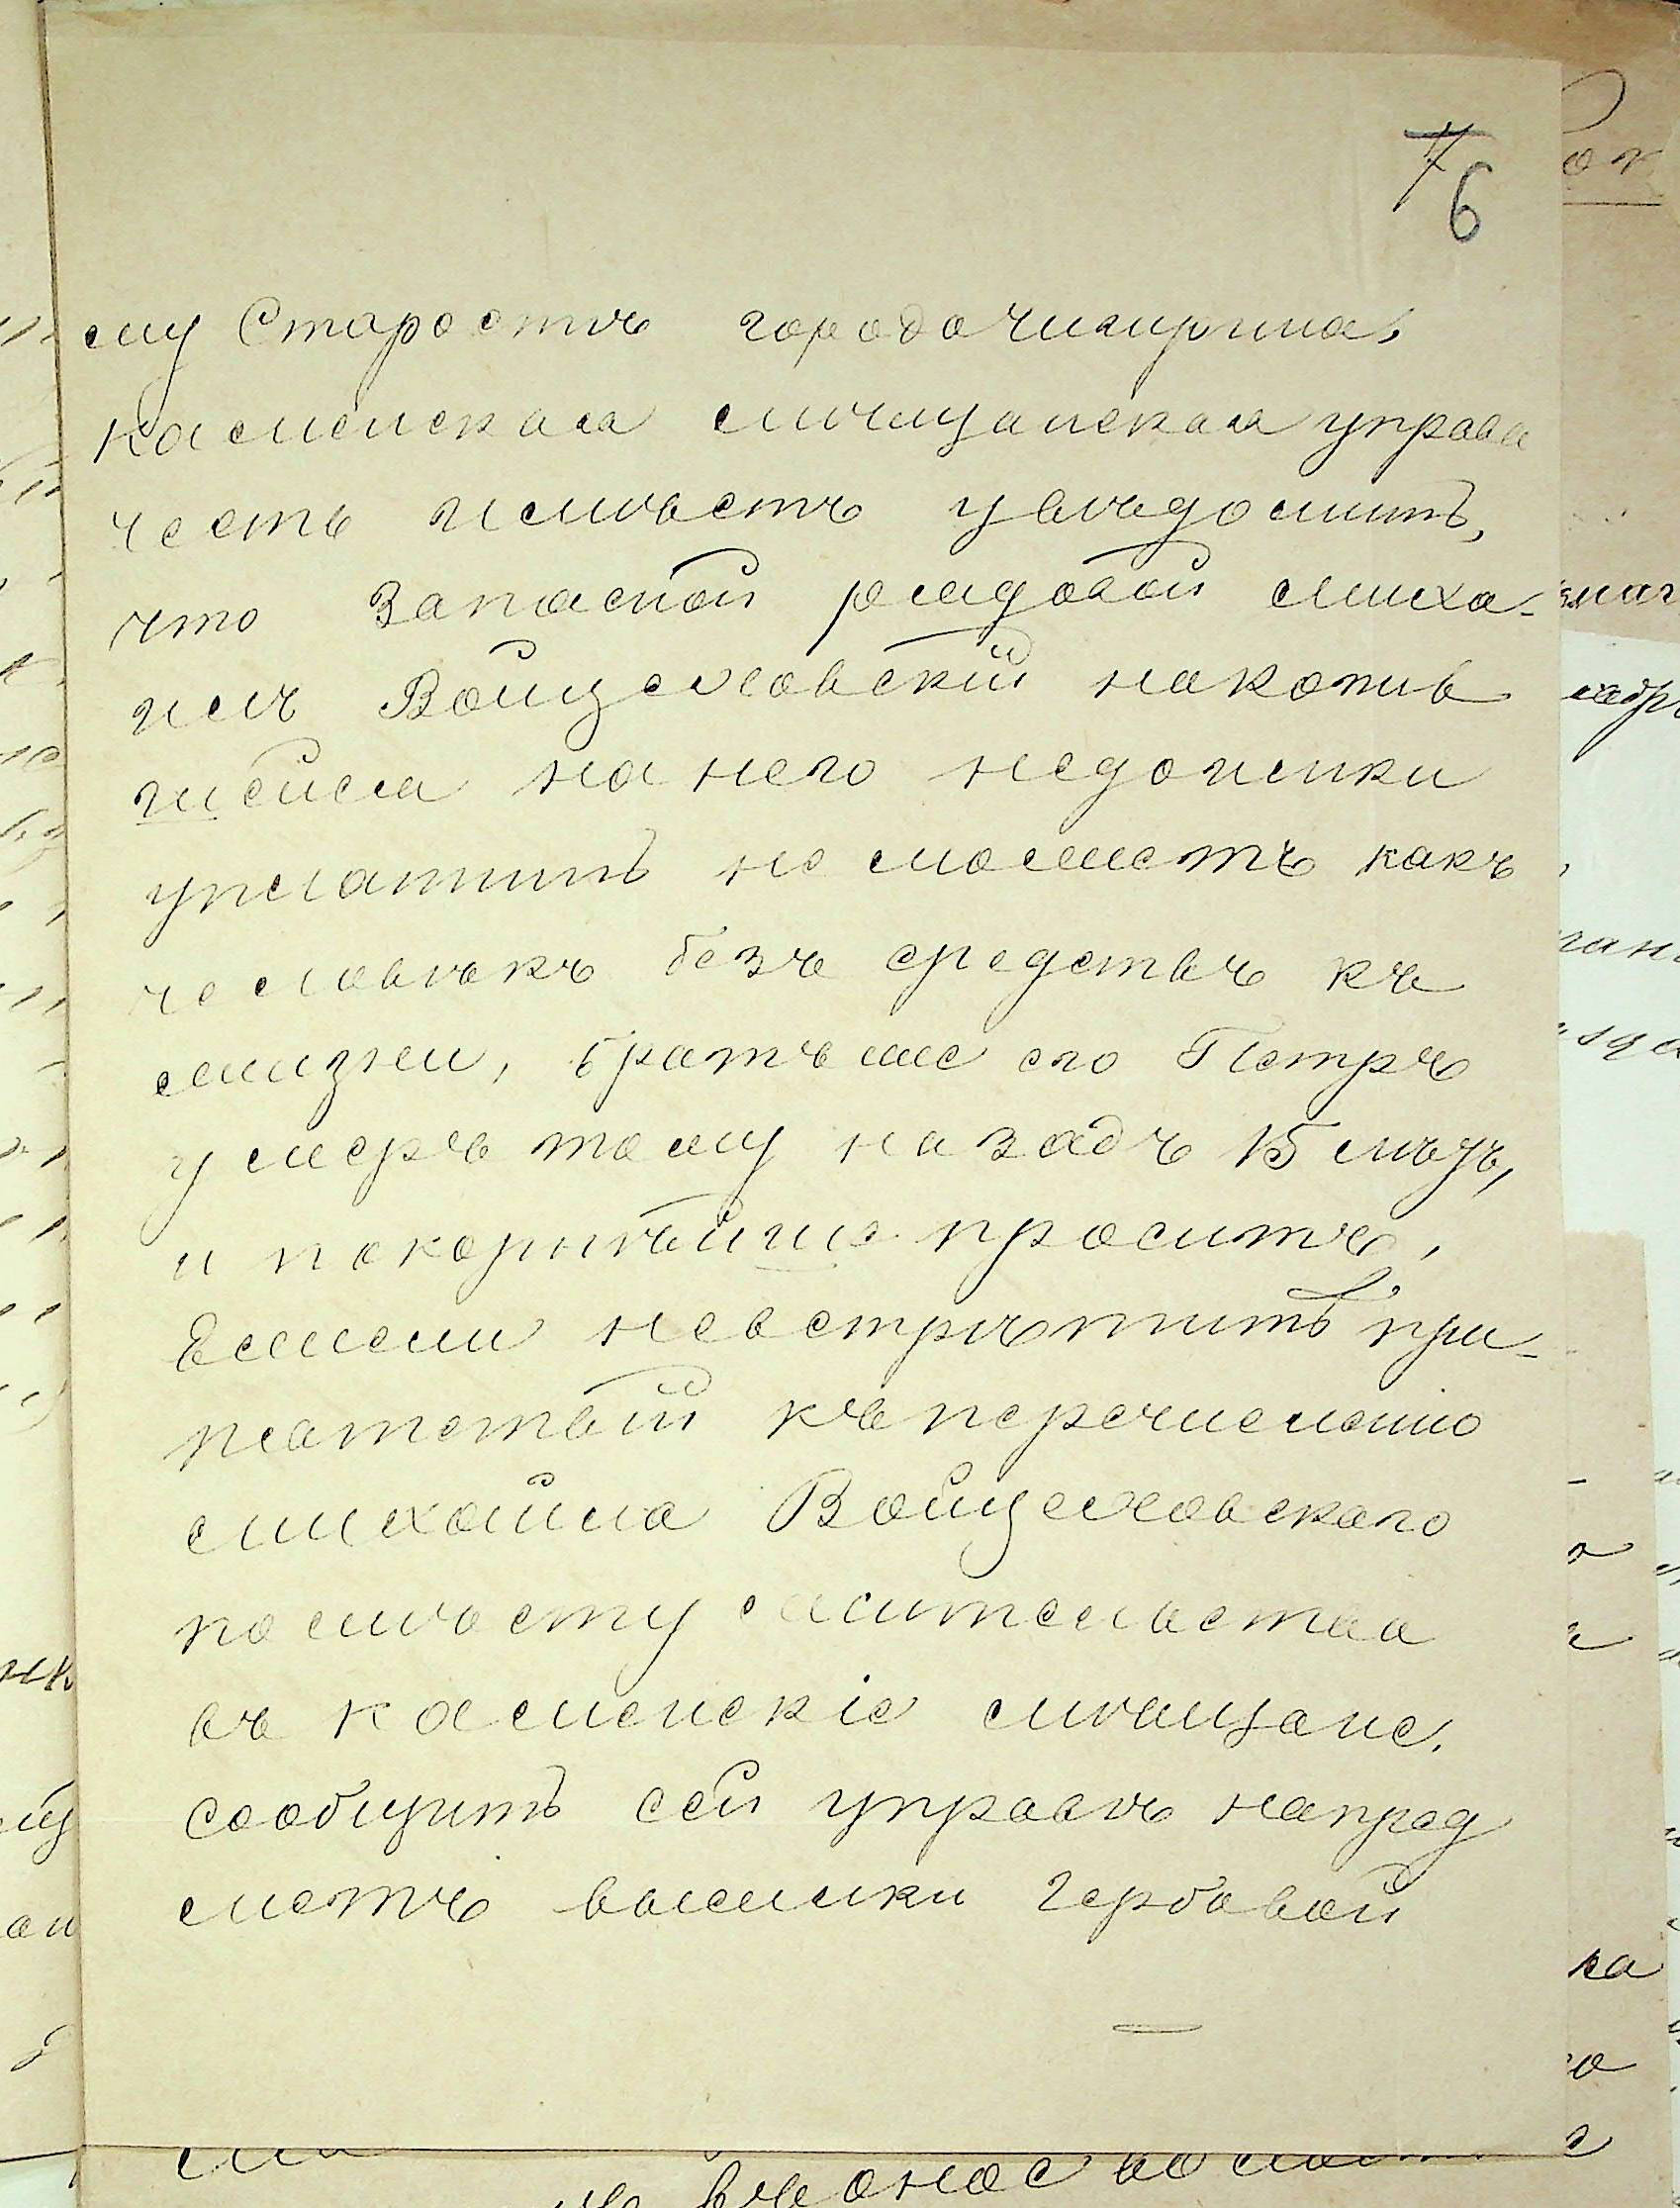 7 6
му Старостѣ города Чигирина,
Каменская мѣщанская управа
честь имѣетъ увѣдомить,
что запасной рядовой Миха-
илъ Войцеховскій накопив
шейся на него недоимки
уплатить не можетъ какъ
человѣкъ безъ средствъ къ
жизни, братъ же его Петръ
умеръ тому назадъ 15 мѣ,
и покорнѣйше проситъ,
Ежели невстрѣтить пре-
пятствій къ перечисленію
Михаила Войцеховскаго
по мѣсту жительства
въ Каменскіе мѣщане,
сообщить сей управѣ на пред
метъ высылки Гербовой